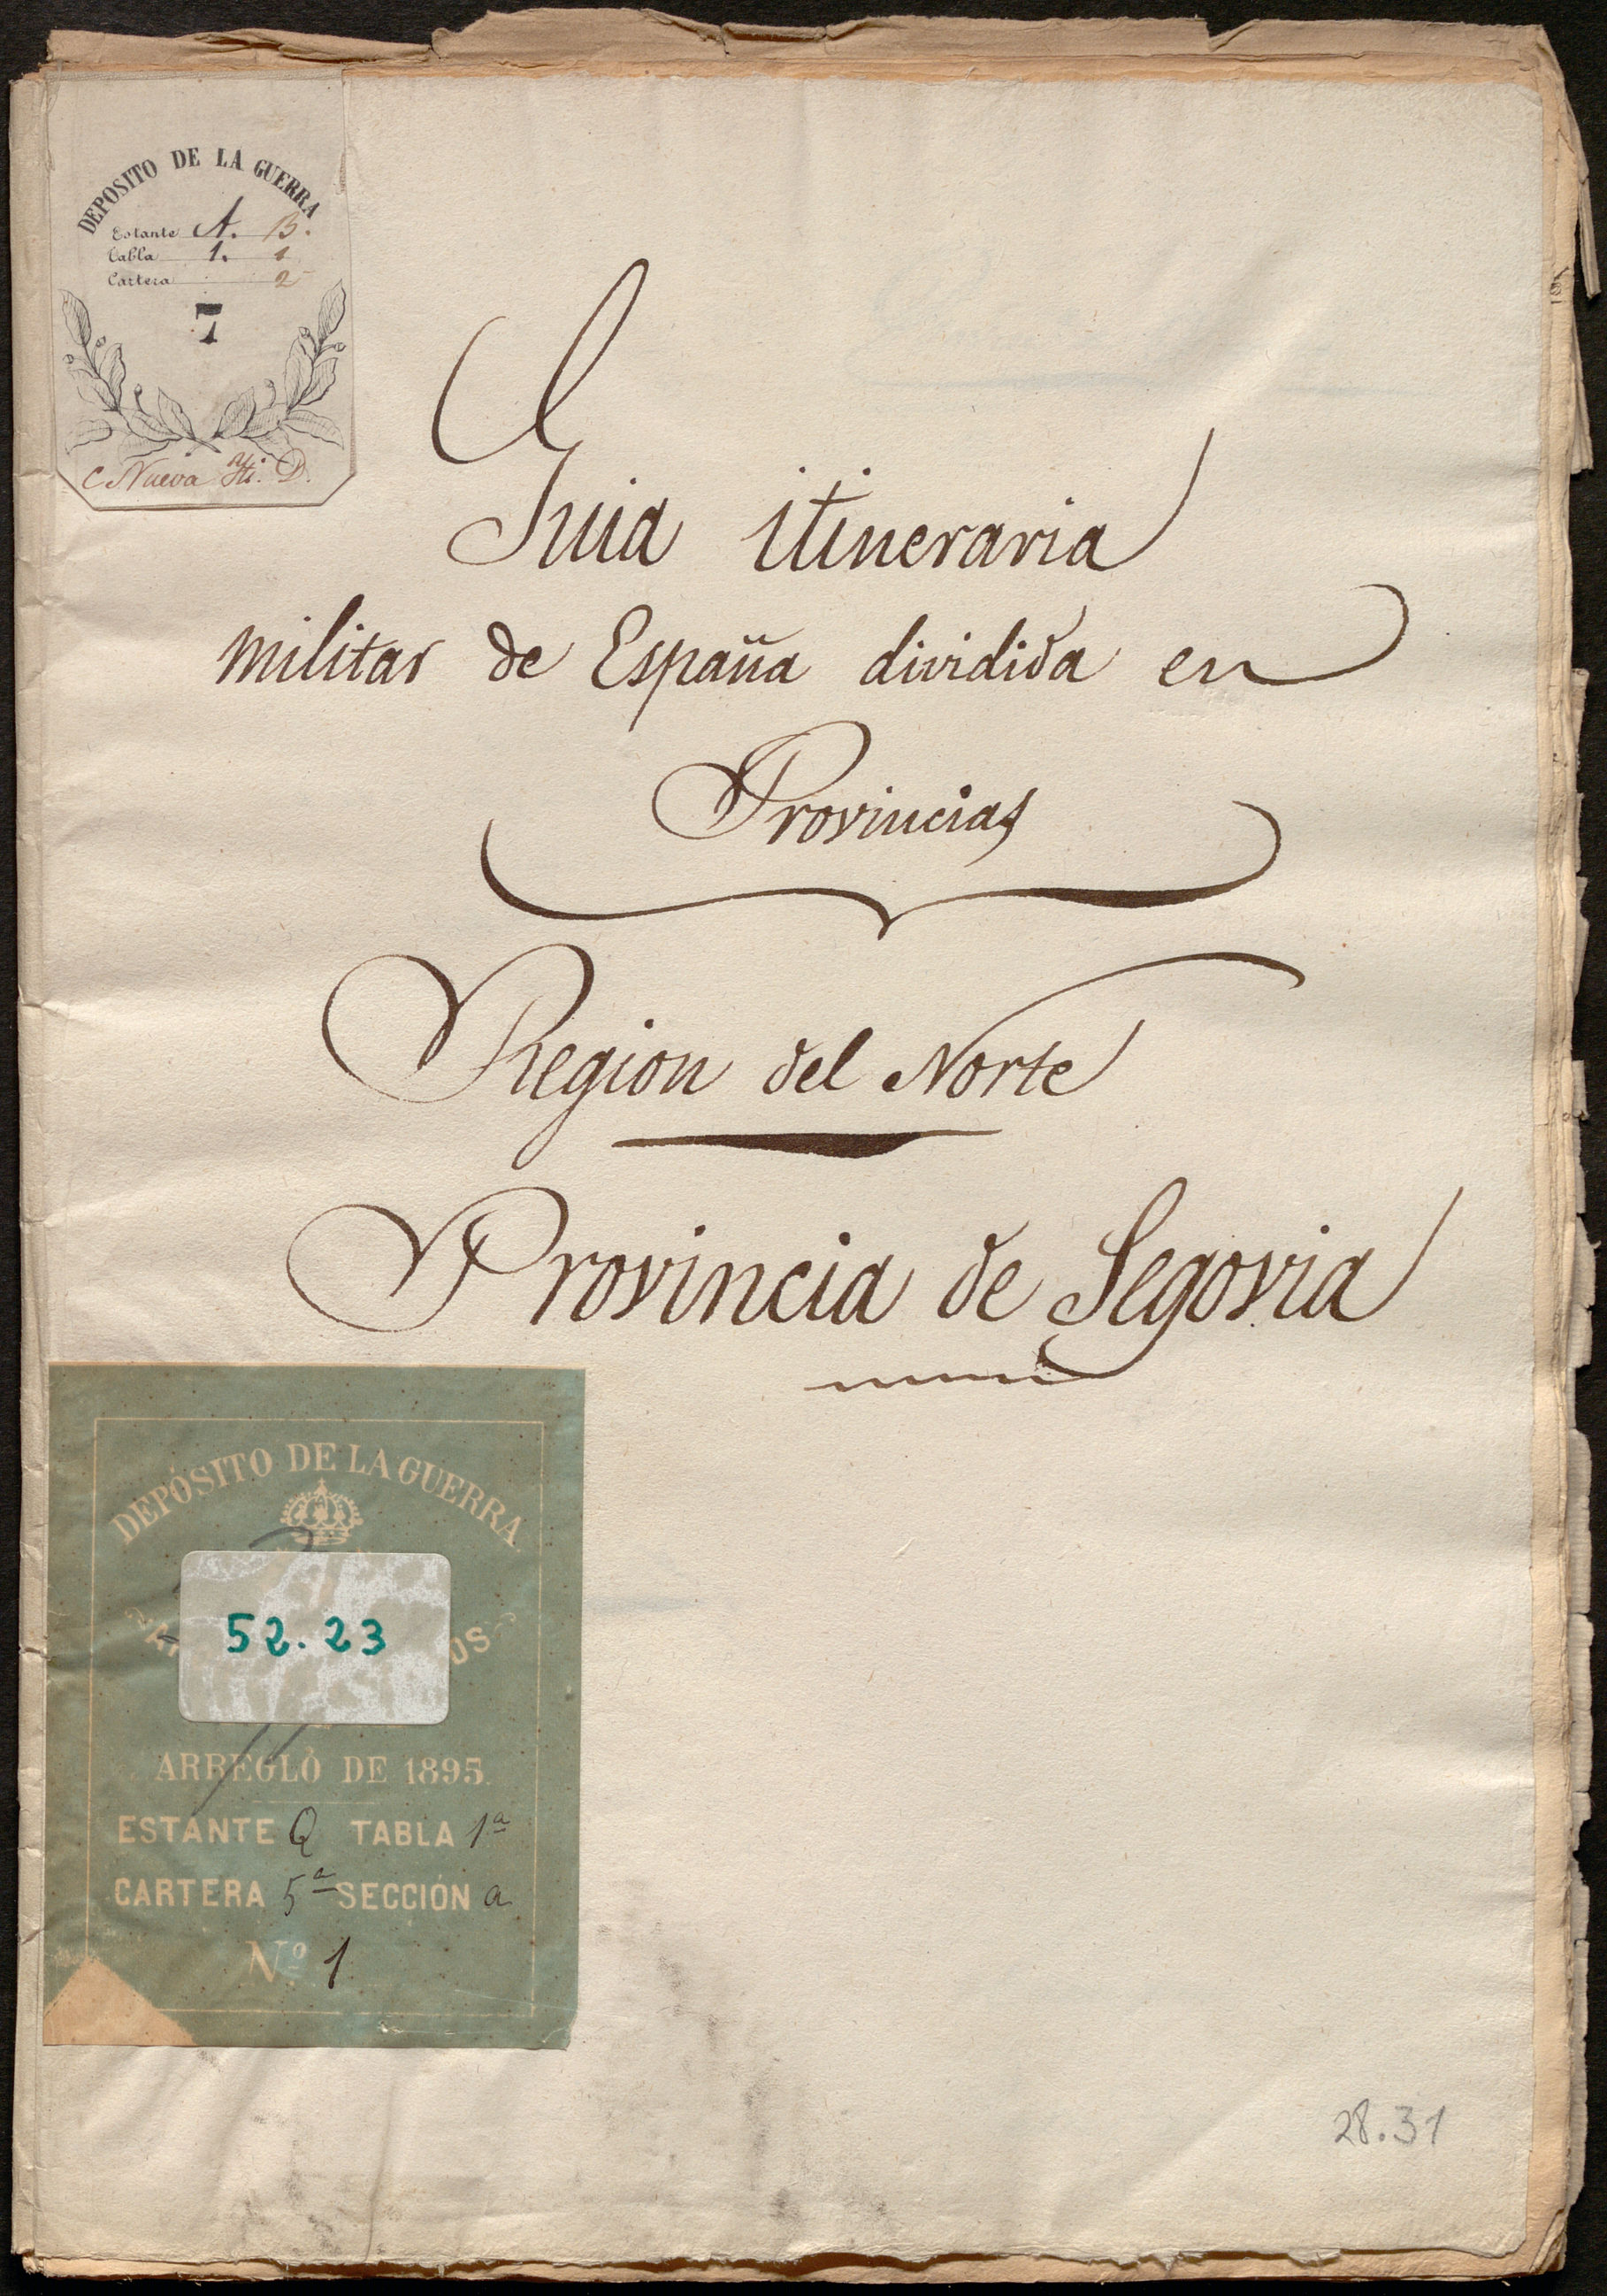 DEPOSITO DE LA GUERRA
Estante A. B.
Tabla 1. 1
Cartera 2
7
C. Nueva D.
Guia itineraria
militar de España dividida en
Provincias
Region del Norte
Provincia de Segovia
DEPÓSITO DE LA GUERRA
52.23
ARREGLO DE 1895.
ESTANTE Q TABLA 1ª
CARTERA 5ª SECCIÓN a
Nº 1
28.31